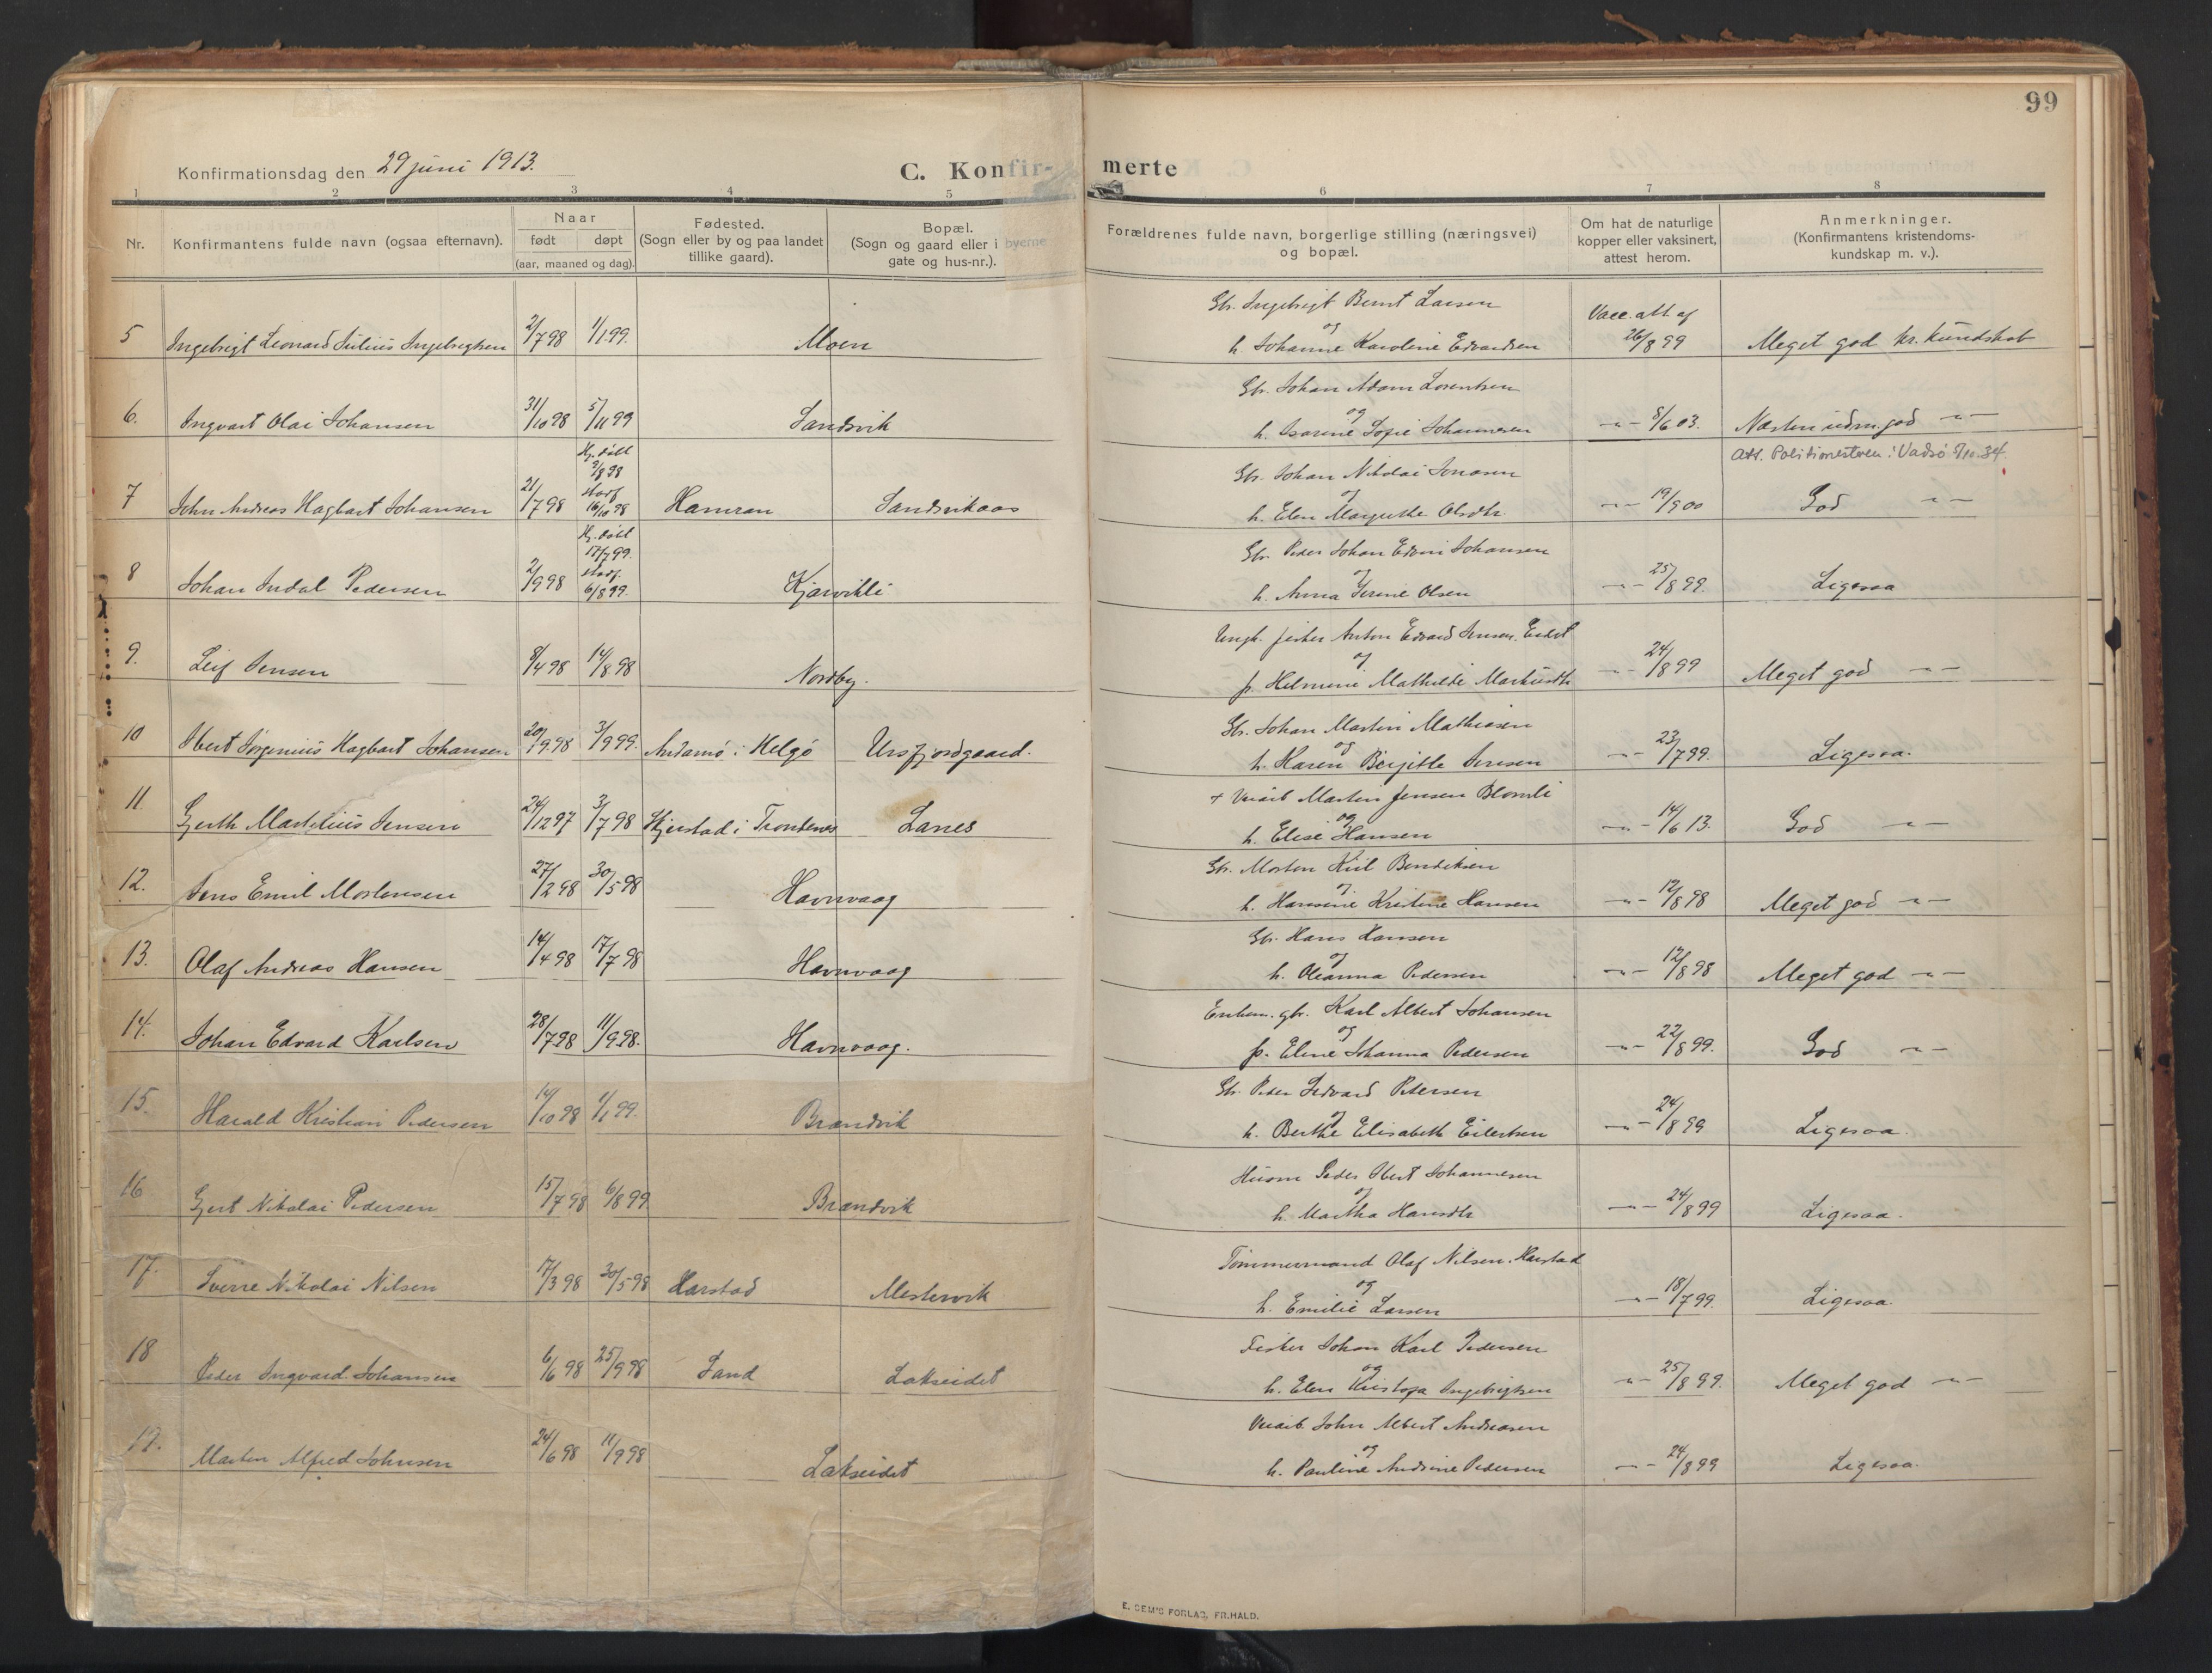 99
Konfirmationsdag den 29 juni 1913.
C. Konfirmerte
1 2 3 4 5 6 7 8
Nr.
Konfirmantens fulde navn (ogsaa efternavn).
Naar
født døpt
(aar, maaned og dag).
Fødested.
(Sogn eller by og paa landet
tillike gaard).
Bopæl.
(Sogn og gaard eller i byerne
gate og hus-nr.).
Forældrenes fulde navn, borgerlige stilling (næringsvei)
og bopæl.
Om hat de naturlige
kopper eller vaksinert,
attest herom.
Anmerkninger.
(Konfirmantens kristendoms-
kundskap m. v.).
Gbr. Ingebrigt Bernt Larsen
og
Vacc. att af
5 Ingebrigt Leonard Julius Ingebrigtsen 2/7 98 1/1 99. Moen h. Johanne Karoline Edvardsen 26/8 99 Meget god kr. kundskab
Gbr. Johan Adam Lorentsen
og
6. Ingvart Olai Johansen 31/10 98 5/11 99 Sandsvik h. Isarine Sofie Johannesen -"- 8/6 03. Næsten udm. god -"-
Att. Politimesteren i Vadsø 9/10.34.
Hj. døbt
9/8 98
stadf.
Gbr. Johan Nikolai Jonasen
og
7 John Andreas Hagbart Johansen 21/7 98 16/10 98 Hamran Sandsvikaas h. Elen Margrethe Olsdtr. -"- 19/9 00 God -"-
Hj. døbt
17/7 99.
stadf.
Gbr. Peder Johan Edvin Johansen
og
8 Johan Indal Pedersen 2/9 98 6/8 99. Kjærvikli h. Anna Serine Olsen -"- 25/8 99. Ligesaa
Ungk. fisker Anton Edvard Jensen. Eidet
og
9. Leif Jensen 8/4 98 14/8 98 Nordby. p. Helmine Mathilde Markusdtr -"- 24/8 99 Meget god -"-
Gbr. Johan Martin Mathiasen
og
10 Obert Jørgenius Hagbart Johansen 20/9.98 3/9 99. Andamø i Helgø Ursfjordgaard. h. Karen Bergitte Jensen -"- 23/7 99. Ligesaa.
+ Veiarb Martin Jensen Blomli
og
11. Gerth Martelius Jensen 24/12 97 3/7 98 Kjerstad i Trondenes Lanes h. Elise Hansen -"- 14/6 13. God -"-
Gbr. Morten Kiil Bendiksen
og
12. Jens Emil Mortensen 27/2 98 30/5 98 Havnvaag h. Hansine Kristine Hansen -"- 12/8 98 Meget god -"-
Gbr. Hans Hansen
og
13. Olaf Andreas Hansen 14/4 98 17/7 98 Havnvaag h. Oleanna Pedersen -"- 12/8 98 Meget god -"-
Enkem. gbr. Karl Albert Johansen
og
14. Johan Edvard Karlsen 28/7 98 11/9 98. Havnvaag. p. Eline Johanna Pedersen -"- 22/8 99. God -"-
Gbr. Peder Edvard Petersen
og
15. Harald Kristian Pedersen 14/10 98 1/1 99. Brandvik h. Berthe Elisabeth Eilertsen -"- 24/8 99 Ligesaa.
Husm Peder Obert Johannesen
og
16 Gert Nikolai Pedersen 15/7 98 6/8 99 Brandvik h. Martha Hansdtr -"- 24/8 99 Ligesaa.
Tømmermand Olaf Nilsen. Harstad
og
17. Sverre Nikolai Nilsen 17/3 98 30/5 98 Harstad Mestervik h. Emilie Larsen -"- 18/7 99. Ligesaa.
Fisker Johan Karl Pedersen
og
18 Peder Ingvard Johansen 6/6 98 25/9 98 Sand Lakseidet h. Elen Kristofa Ingebrigtsen -"- 25/8 99. Meget god -"-
Veiarb. John Albert Andreasen
og
19. Morten Alfred Johnsen 24/6 98 11/9 98 Lakseidet h. Pauline Andrine Pedersen -"- 24/8 99 Ligesaa.
E. SEM'S FORLAG, FR.HALD.